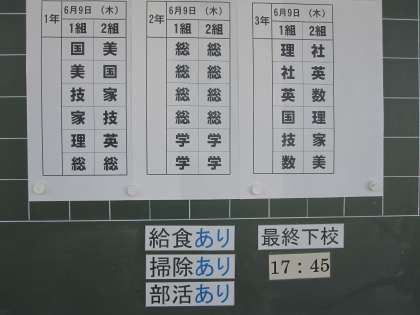 1年 6月9日 (木)
1組 2組
国 美
美 国
技 家
家 技
理 英
総 総
2年 6月9日 (木)
1組 2組
総 総
総 総
総 総
総 総
学 学
学 学
3年 6月9日 (木)
1組 2組
理 社
社 英
英 数
国 理
技 家
数 美
給食あり
掃除あり
部活あり
最終下校
17：45